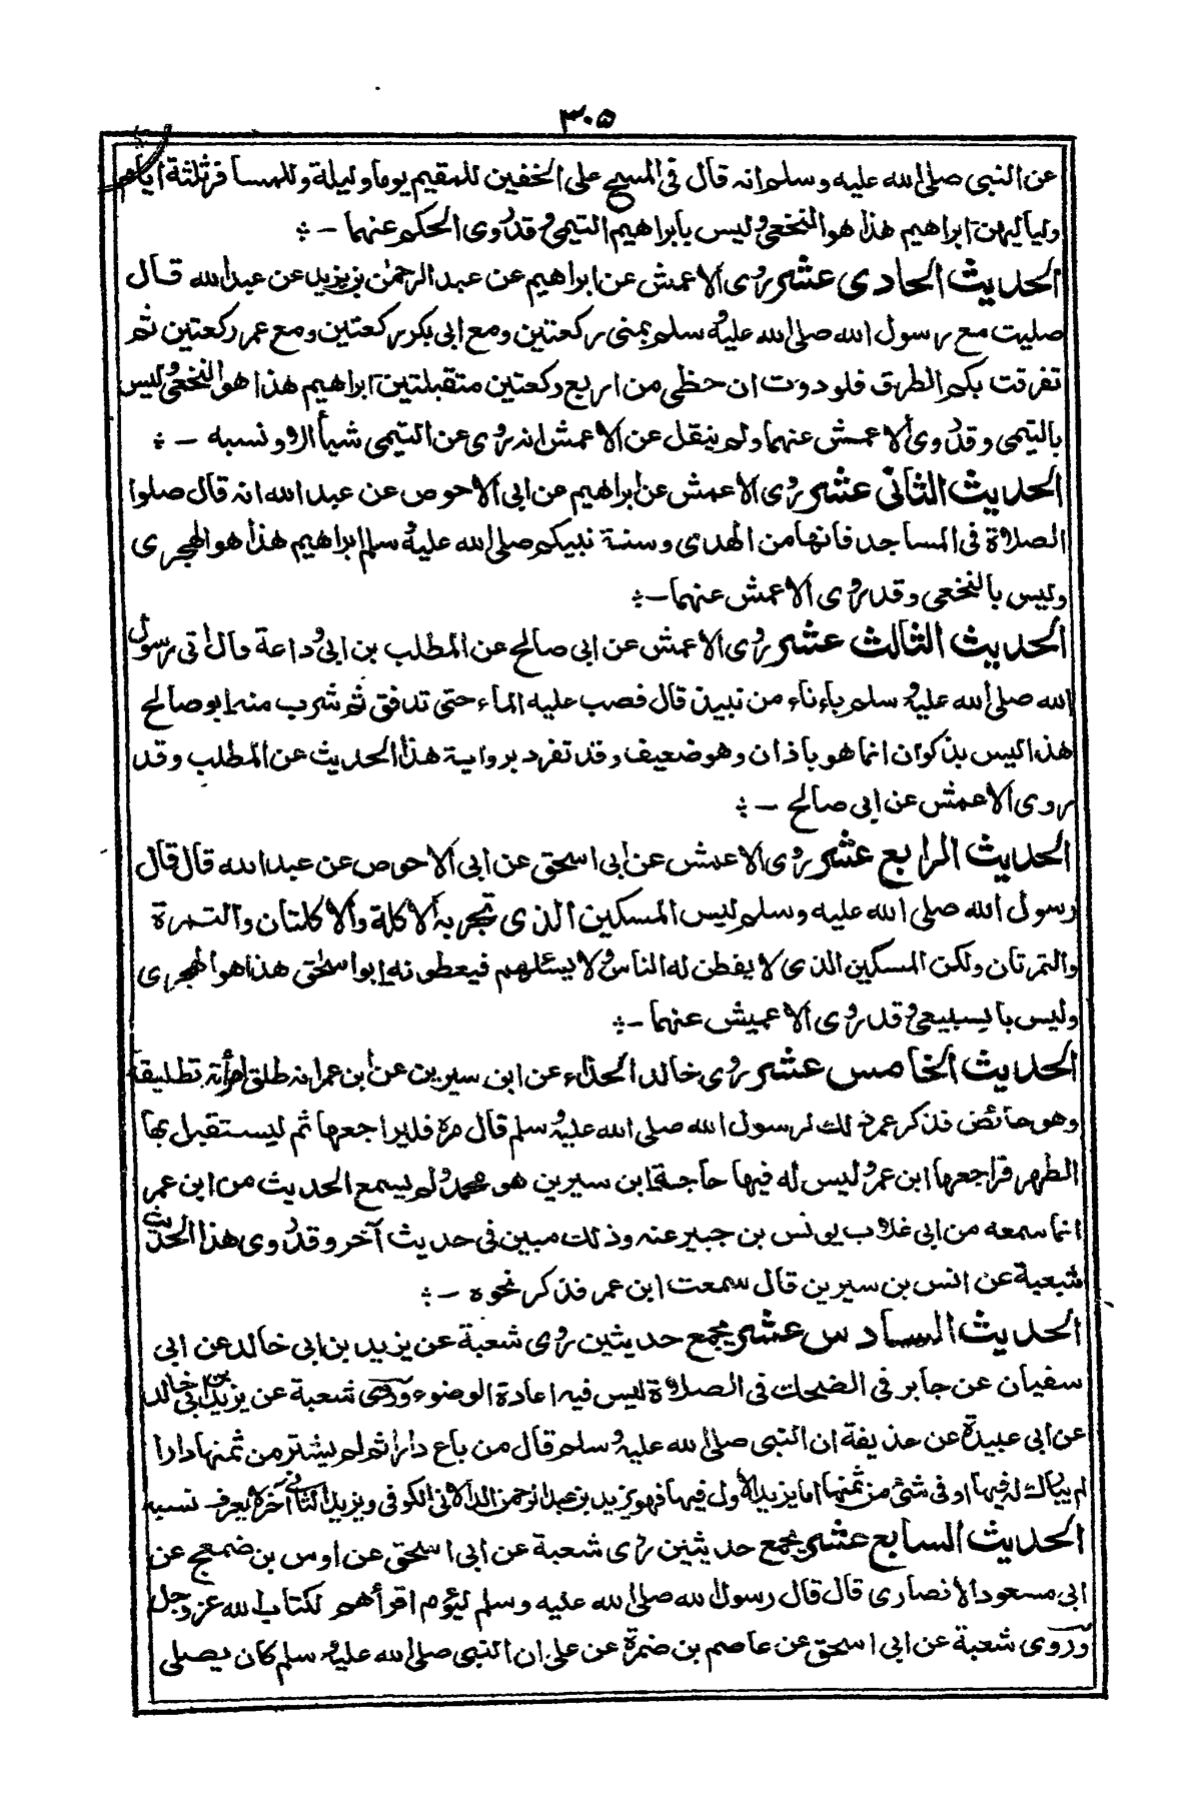 ٣٠٥
عن النبى صلى الله عليه وسلم انه قال فى المسح على الخفين للمقيم يوما وليلة وللمسافر ثلثة ايام
ولياليهن ابراهيم هذا هو النخعى وليس بابراهيم التيمى وقد روى الحكم عنهما -:
الحديث الحادى عشر روى الاعمش عن ابراهيم عن عبد الرحمٰن بن يزيد عن عبد الله قال
صليت مع رسول الله صلى الله عليه وسلم بمنى ركعتين ومع ابى بكر ركعتين ومع عمر ركعتين ثم
تفرقت بكم الطرق فلوددت ان حظى من اربع ركعتين متقبلتين ابراهيم هذا هو النخعى وليس
بالتيمى وقد روى الاعمش عنهما ولم ينقل عن الاعمش انه روى عن التيمى شيأ الا ونسبه -:
الحديث الثانى عشر روى الاعمش عن ابراهيم عن ابى الاحوص عن عبد الله انه قال صلوا
الصلاة فى المساجد فانها من الهدى وسنة نبيكم صلى الله عليه وسلم ابراهيم هذا هو الهجرى
وليس بالنخعى وقد روى الاعمش عنهما -:
الحديث الثالث عشر روى الاعمش عن ابى صالح عن المطلب بن ابى وداعة قال اتى رسول
الله صلى الله عليه وسلم باناء من نبيذ قال فصب عليه الماء حتى تدفق ثم شرب منه ابو صالح
هذا ليس بذكوان انما هو باذان وهو ضعيف وقد تفرد برواية هذا الحديث عن المطلب وقد
روى الاعمش عن ابى صالح -:
الحديث الرابع عشر روى الاعمش عن ابى اسحق عن ابى الاحوص عن عبد الله قال قال
رسول الله صلى الله عليه وسلم ليس المسكين الذى تجر به الاكلة والاكلتان والتمرة
والتمرتان ولكن المسكين الذى لا يفطن له الناس ولا يسئلهم فيعطونه ابو اسحٰق هذا هو الهجرى
وليس بالسبيعى وقد روى الاعميش عنهما -:
الحديث الخامس عشر روى خالد الحذاء عن ابن سيرين عن ابن عمر انه طلق امرأته تطليقة
وهو حائض فذكر عمر ذلك لرسول الله صلى الله عليه وسلم قال مره فليراجعها ثم ليستقبل بها
الطهر فراجعها ابن عمر وليس له فيها حاجة ابن سيرين هو محمد ولم يسمع الحديث من ابن عمر
انما سمعه من ابى غلاب يونس بن جبير عنه وذلك مبين فى حديث آخر وقد روى هذا الحديث
شبعبة عن انس بن سيرين قال سمعت ابن عمر فذكر نحوه -:
الحديث السادس عشر يجمع حديثين روى شعبة عن يزيد بن ابى خالد عن ابى
سفيان عن جابر فى الضحك فى الصلاة ليس فيه اعادة الوضوء وروى شعبة عن يزيد بن ابى خالد
عن ابى عبيدة عن حذيفة ان النبى صلى الله عليه وسلم قال من باع دارا ثم لم يشتر من ثمنها دارا
لم يبارك له فيها او فى شئ من ثمنها اما يزيد الاول فيها فهو يزيد بن عبد الرحمن الدالانى الكوفى ويزيد الثانى آخر لا يعرف نسبه
الحديث السابع عشر يجمع حديثين روى شعبة عن ابى اسحق عن اوس بن ضمعج عن
ابى مسعود الانصارى قال قال رسول الله صلى الله عليه وسلم ليؤم اقرأهم لكتاب الله عز وجل
وروى شعبة عن ابى اسحق عن عاصم بن ضمرة عن على ان النبى صلى الله عليه وسلم كان يصلى